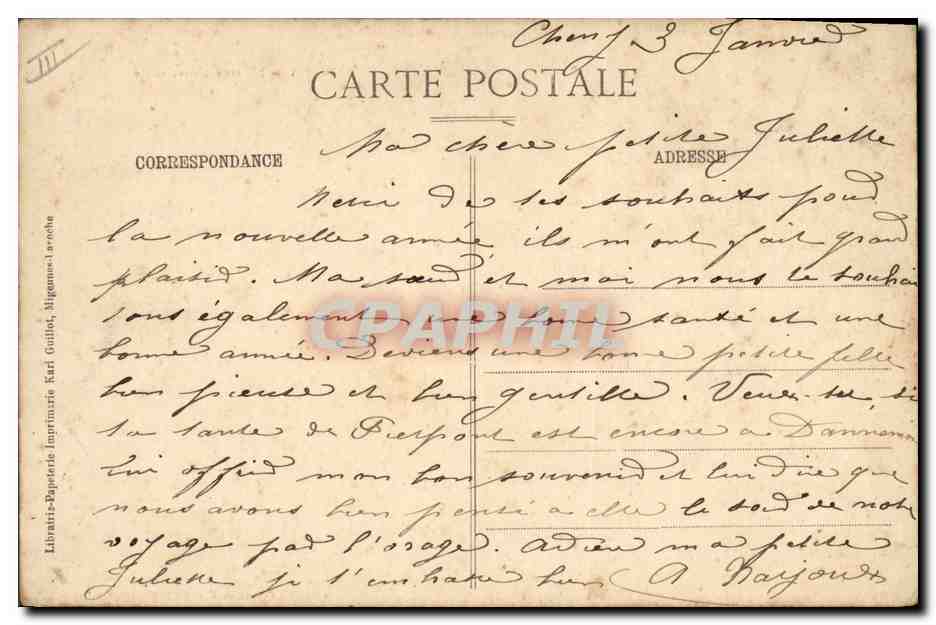 III
Cheny 3 Janvier
CARTE POSTALE
CORRESPONDANCE
ADRESSE
Ma chère petite Juliette
Merci de tes souhaits pour
la nouvelle année ils m'ont fait grand
plaisir. Ma sœur et moi nous te souhai
tons également une bonne santé et une
bonne année. Deviens une bonne petite fille
bien pieuse et bien gentille. Veux-tu, si
ta tante de Pierpont est encore à Dannemoine
lui offrir mon bon souvenir et lui dire que
nous avons bien pensé à elle le soir de notre
voyage par l'orage. Adieu ma petite
Juliette je t'embrasse bien A
Librairie-Papeterie Imprimerie Karl Guillot, Migennes-Laroche
CPAPHIL